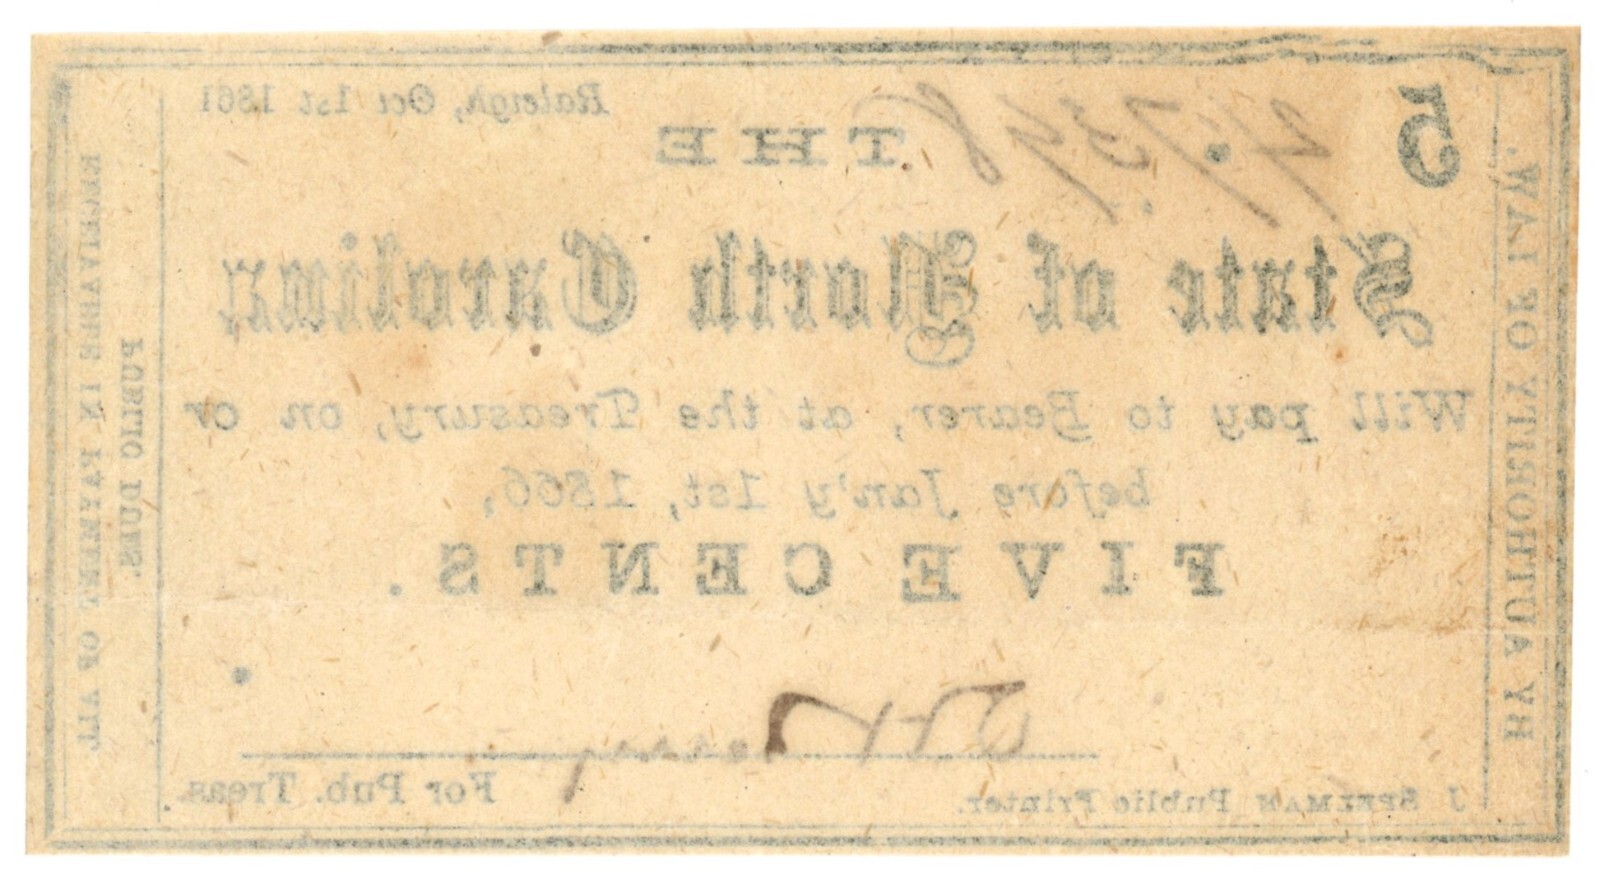 5
Raleigh, Oct 1st 1861
THE
State of North Carolina,
Will pay to Bearer, at the Treasury, on or
before Jan'y 1st, 1866,
FIVE CENTS.
J SPELMAN Public Printer.
For Pub. Treas.
BY AUTHORITY OF LAW.
RECEIVABLE IN PAYMENT OF ALL
PUBLIC DUES.